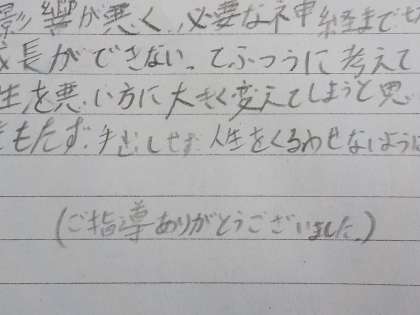 影響が悪く、必要な神経まで
長ができない。てふつうに考えて
生を悪い方に大きく変えてしまうと思
もたず、手出しせず人生をくるわせないように
(ご指導ありがとうございました。)